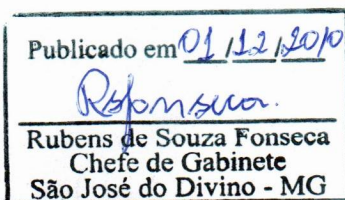 Publicado em 01/12/2010
Rsfonseca.
Rubens de Souza Fonseca
Chefe de Gabinete
São José do Divino - MG